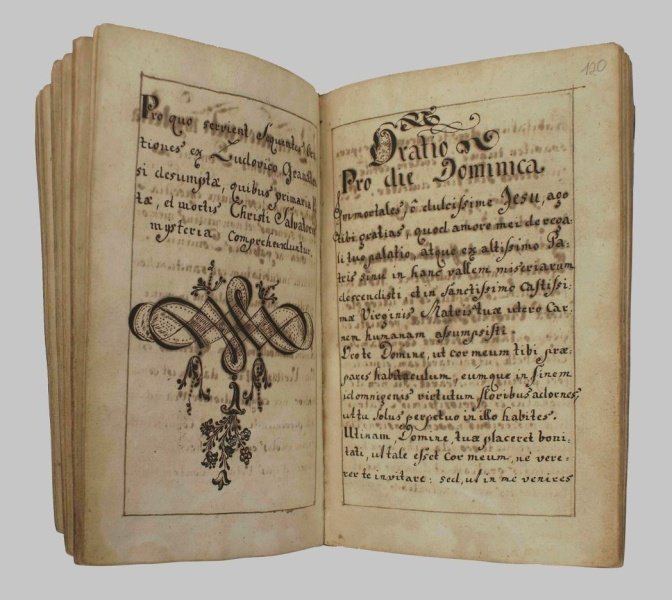 Pro quo servient sequentes Ora
tiones ex Ludovico Granaten
si desumptæ, quibus primaria
tæ, et mortis Christi Salvatoris
mysteria comprehenduntur.
120
Oratio
Pro die Dominica
Immortales ô dulcissime Jesu, ago
tibi gratias, quod amore mei de rega
li tuo palatio, atque ex altissimo Pa:
tris sinu in hanc vallem miseriarum
descendisti, et in Sanctissimo Castissi:
mæ Virginis Matris tuæ utero Car:
nem humanam assumpsisti.
Domine, ut cor meum tibi præ:
pares habitaculum, eumque in finem
id omnigenis virtutum floribus adornes,
ut tu solus perpetuo in illo habites.
Utinam, Domine, tuæ placeret boni:
tati, ut tale esset Cor meum, ne vere:
rer te invitare: sed, ut in me venires